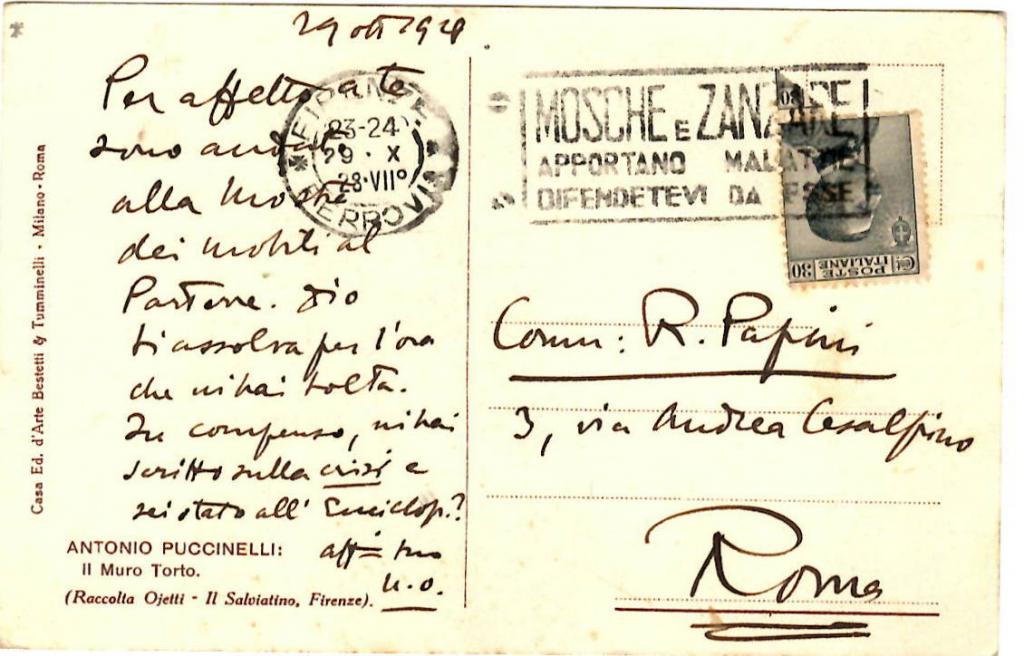 29 ott 1928
Per affetto a te
sono andato
alla Mostra
dei mobili al
Parterre. Dio
ti assolva per l'ora
che mi hai tolta.
In compenso, mi hai
scritto sulla crisi e
sei stato all' Enciclop.?
aff tuo
u.o.
FIRENZE
23-24
29 · X
28·VII°
FERROVIA
MOSCHE E ZANZARE
APPORTANO MALATTIE
DIFENDETEVI DA ESSE
30
POSTE
ITALIANE
Cmi
30
Comm: R. Papini
3, via Andrea Cesalpino
Roma
Casa Ed. d'Arte Bestetti & Tumminelli - Milano - Roma
ANTONIO PUCCINELLI:
Il Muro Torto.
(Raccolta Ojetti - Il Salviatino, Firenze).